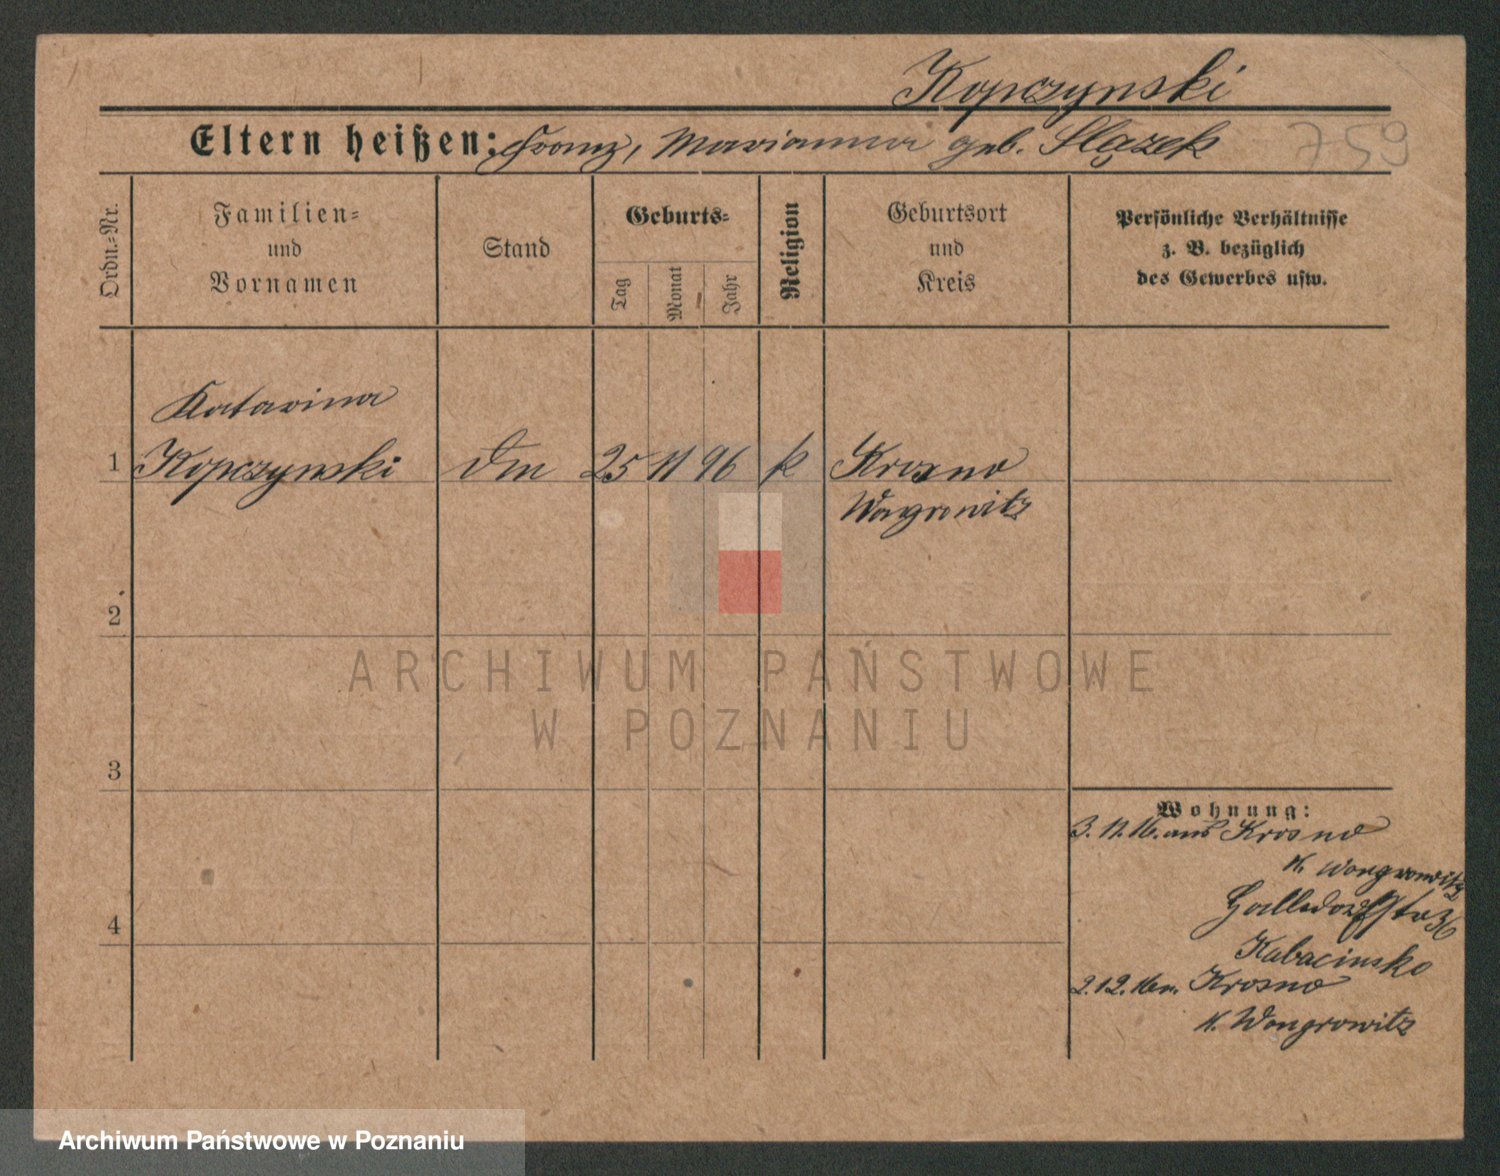 Kopczynski
Eltern heißen: Franz, Marianna geb. Slązek
759
Ordn.=Nr.
Familien=
und
Vornamen
Stand
Geburts=
Tag
Monat
Jahr
Religion
Geburtsort
und
Kreis
Persönliche Verhältnisse
z. B. bezüglich
des Gewerbes usw.
Katarina
1 Kopczynski 25 11 96 k Krosno
Wongrowitz
2
3
4
Wohnung:
3. 11. 16. aus Krosno
K. Wongrowitz
36
Kabacinsko
2. 12. 16 n. Krosno
K. Wongrowitz
ARCHIWUM PAŃSTWOWE
W POZNANIU
Archiwum Państwowe w Poznaniu